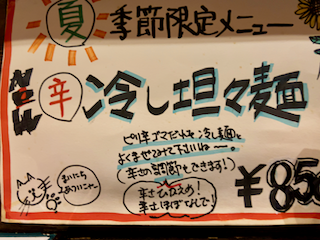 夏 季節限定メニュー
辛 冷し坦々麺
ピリ辛ゴマだれを冷し麺と
よくまぜてみて下さいねー。
(辛さの調節もできます!)
辛さひかえめ!
辛さほぼなしで!
まいにち
¥850